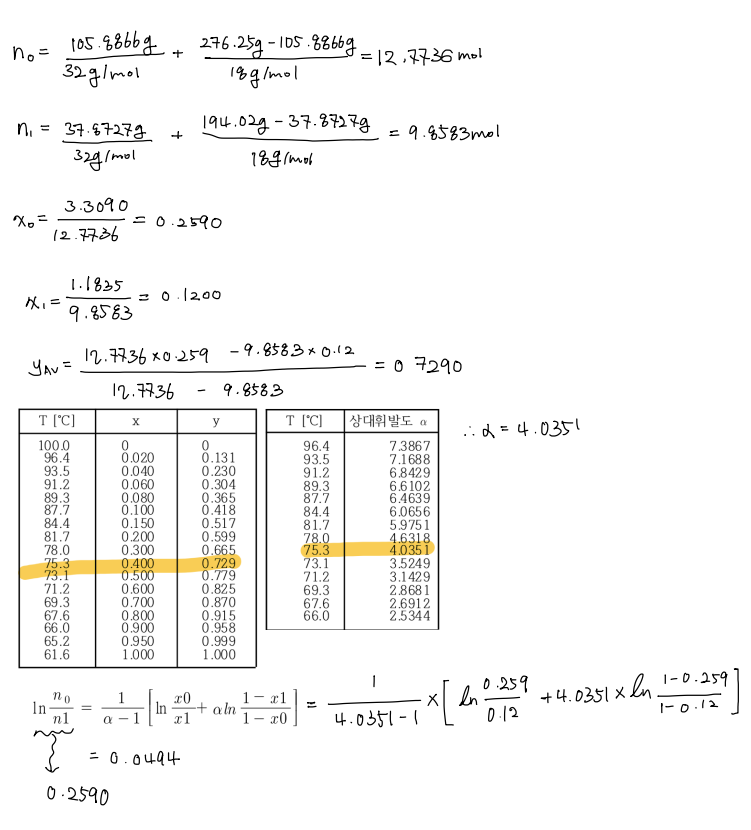 n₀ = 105.8866g / 32g/mol + 276.25g-105.8866g / 18g/mol = 12.7736 mol
n₁ = 37.8727g / 32g/mol + 194.02g-37.8727g / 18g/mol = 9.8583mol
x₀ = 3.3090 / 12.7736 = 0.2590
x₁ = 1.1835 / 9.8583 = 0.1200
yAV = 12.7736×0.259 - 9.8583×0.12 / 12.7736 - 9.8583 = 0.7290
T [℃] x y
100.0 0 0
96.4 0.020 0.131
93.5 0.040 0.230
91.2 0.060 0.304
89.3 0.080 0.365
87.7 0.100 0.418
84.4 0.150 0.517
81.7 0.200 0.599
78.0 0.300 0.665
75.3 0.400 0.729
73.1 0.500 0.779
71.2 0.600 0.825
69.3 0.700 0.870
67.6 0.800 0.915
66.0 0.900 0.958
65.2 0.950 0.999
61.6 1.000 1.000
T [℃] 상대휘발도 α
96.4 7.3867
93.5 7.1688
91.2 6.8429
89.3 6.6102
87.7 6.4639
84.4 6.0656
81.7 5.9751
78.0 4.6318
75.3 4.0351
73.1 3.5249
71.2 3.1429
69.3 2.8681
67.6 2.6912
66.0 2.5344
∴ α = 4.0351
ln n₀/n1 = 1/(α-1) [ln x0/x1 + αln (1-x1)/(1-x0)] = 1/(4.0351-1) × [ln 0.259/0.12 + 4.0351×ln (1-0.259)/(1-0.12)]
= 0.0494
0.2590